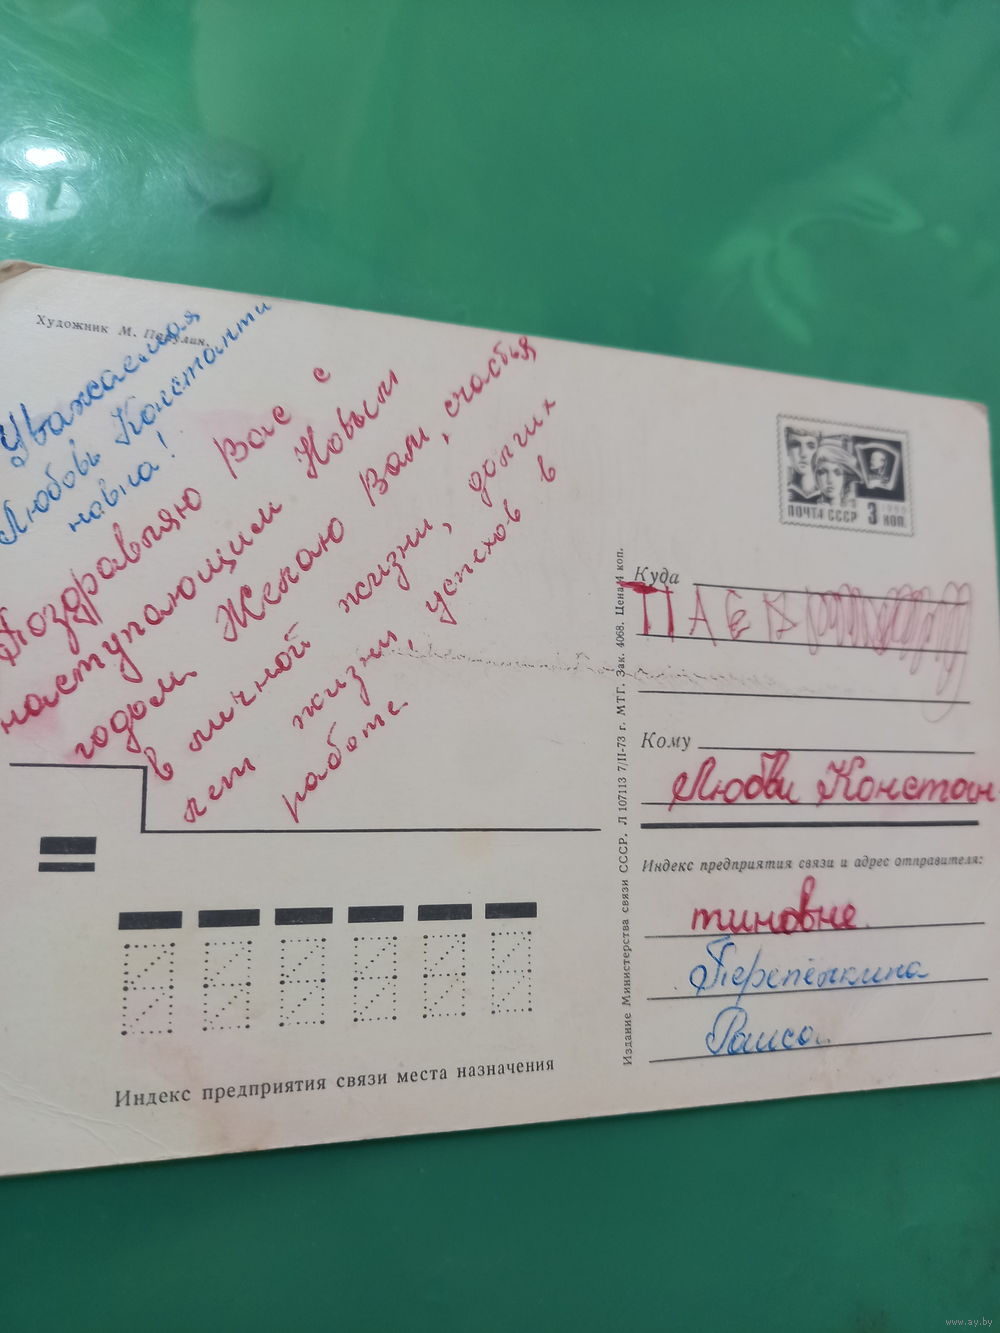 Художник М.
Уважаемая
Любовь Константи
навна!
Поздравляю Вас с
наступающим Новым
годом. Желаю Вам, счастья
в личной жизни, долгих
лет жизни, успехов в
работе.
ПОЧТА СССР 3 КОП.
Куда
Кому
Любви Констан
Индекс предприятия связи и адрес отправителя:
тиновне
Перепёлкина
Раиса.
Издание Министерства связи СССР. Л 107113 7/II-73 г. МТГ. Зак. 4068. Цена 4 коп.
Индекс предприятия связи места назначения
www.ay.by